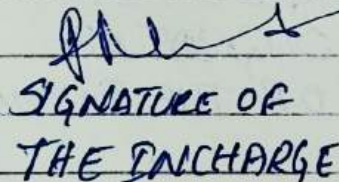 SIGNATURE OF
THE INCHARGE